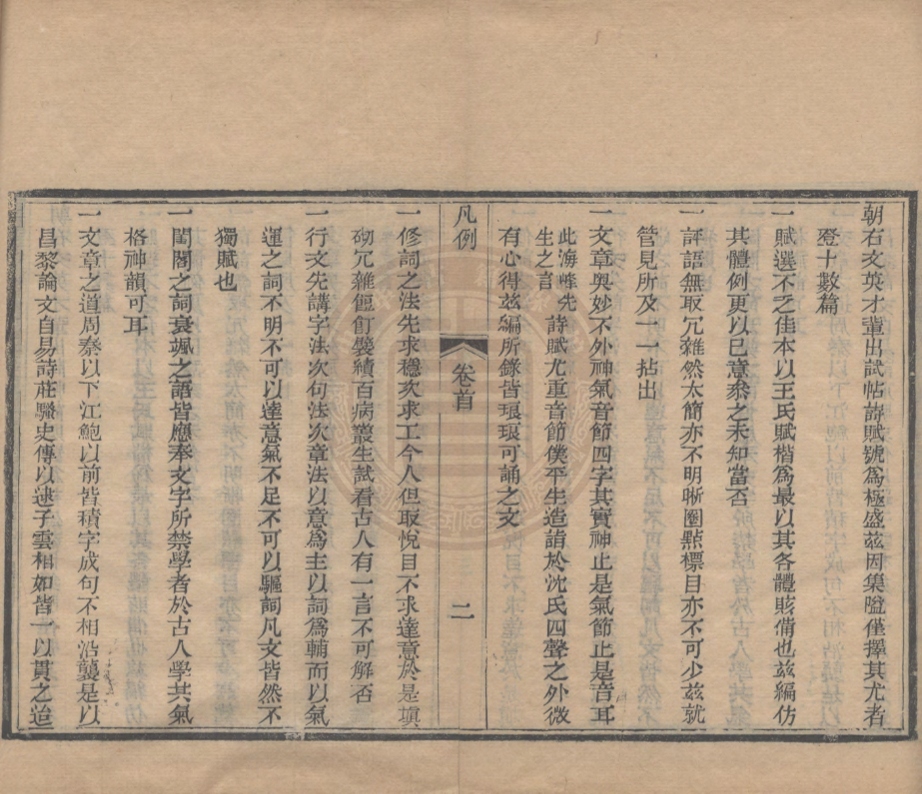 朝右文英才輩出試帖詩賦號爲極盛茲因集隘僅擇其尤者
登十數篇
一賦選不乏佳本以王氏賦楷爲最以其各體賅備也茲編仿
其體例更以已意叅之未知當否
一評語無取冗雜然太簡亦不明晰圈點標目亦不可少茲就
管見所及一一拈出
一文章奥妙不外神氣音節四字其實神止是氣節止是音耳
此海峰先生之言詩賦尤重音節僕平生造詣於沈氏四聲之外微
有心得茲編所錄皆琅琅可誦之文
凡例
卷首
二
一修詞之法先求穩次求工今人但取悅目不求達意於是塡
砌冗雜餖飣襞績百病叢生試看古人有一言不可解否
一行文先講字法次句法次章法以意爲主以詞爲輔而以氣
運之詞不明不可以達意氣不足不可以驅詞凡文皆然不
獨賦也
一閨閣之詞衰颯之語皆應奉文字所禁學者於古人學其氣
格神韻可耳
一文章之道周秦以下江鮑以前皆積字成句不相沿襲是以
昌黎論文自易詩莊騷史傳以逮子雲相如皆一以貫之迨